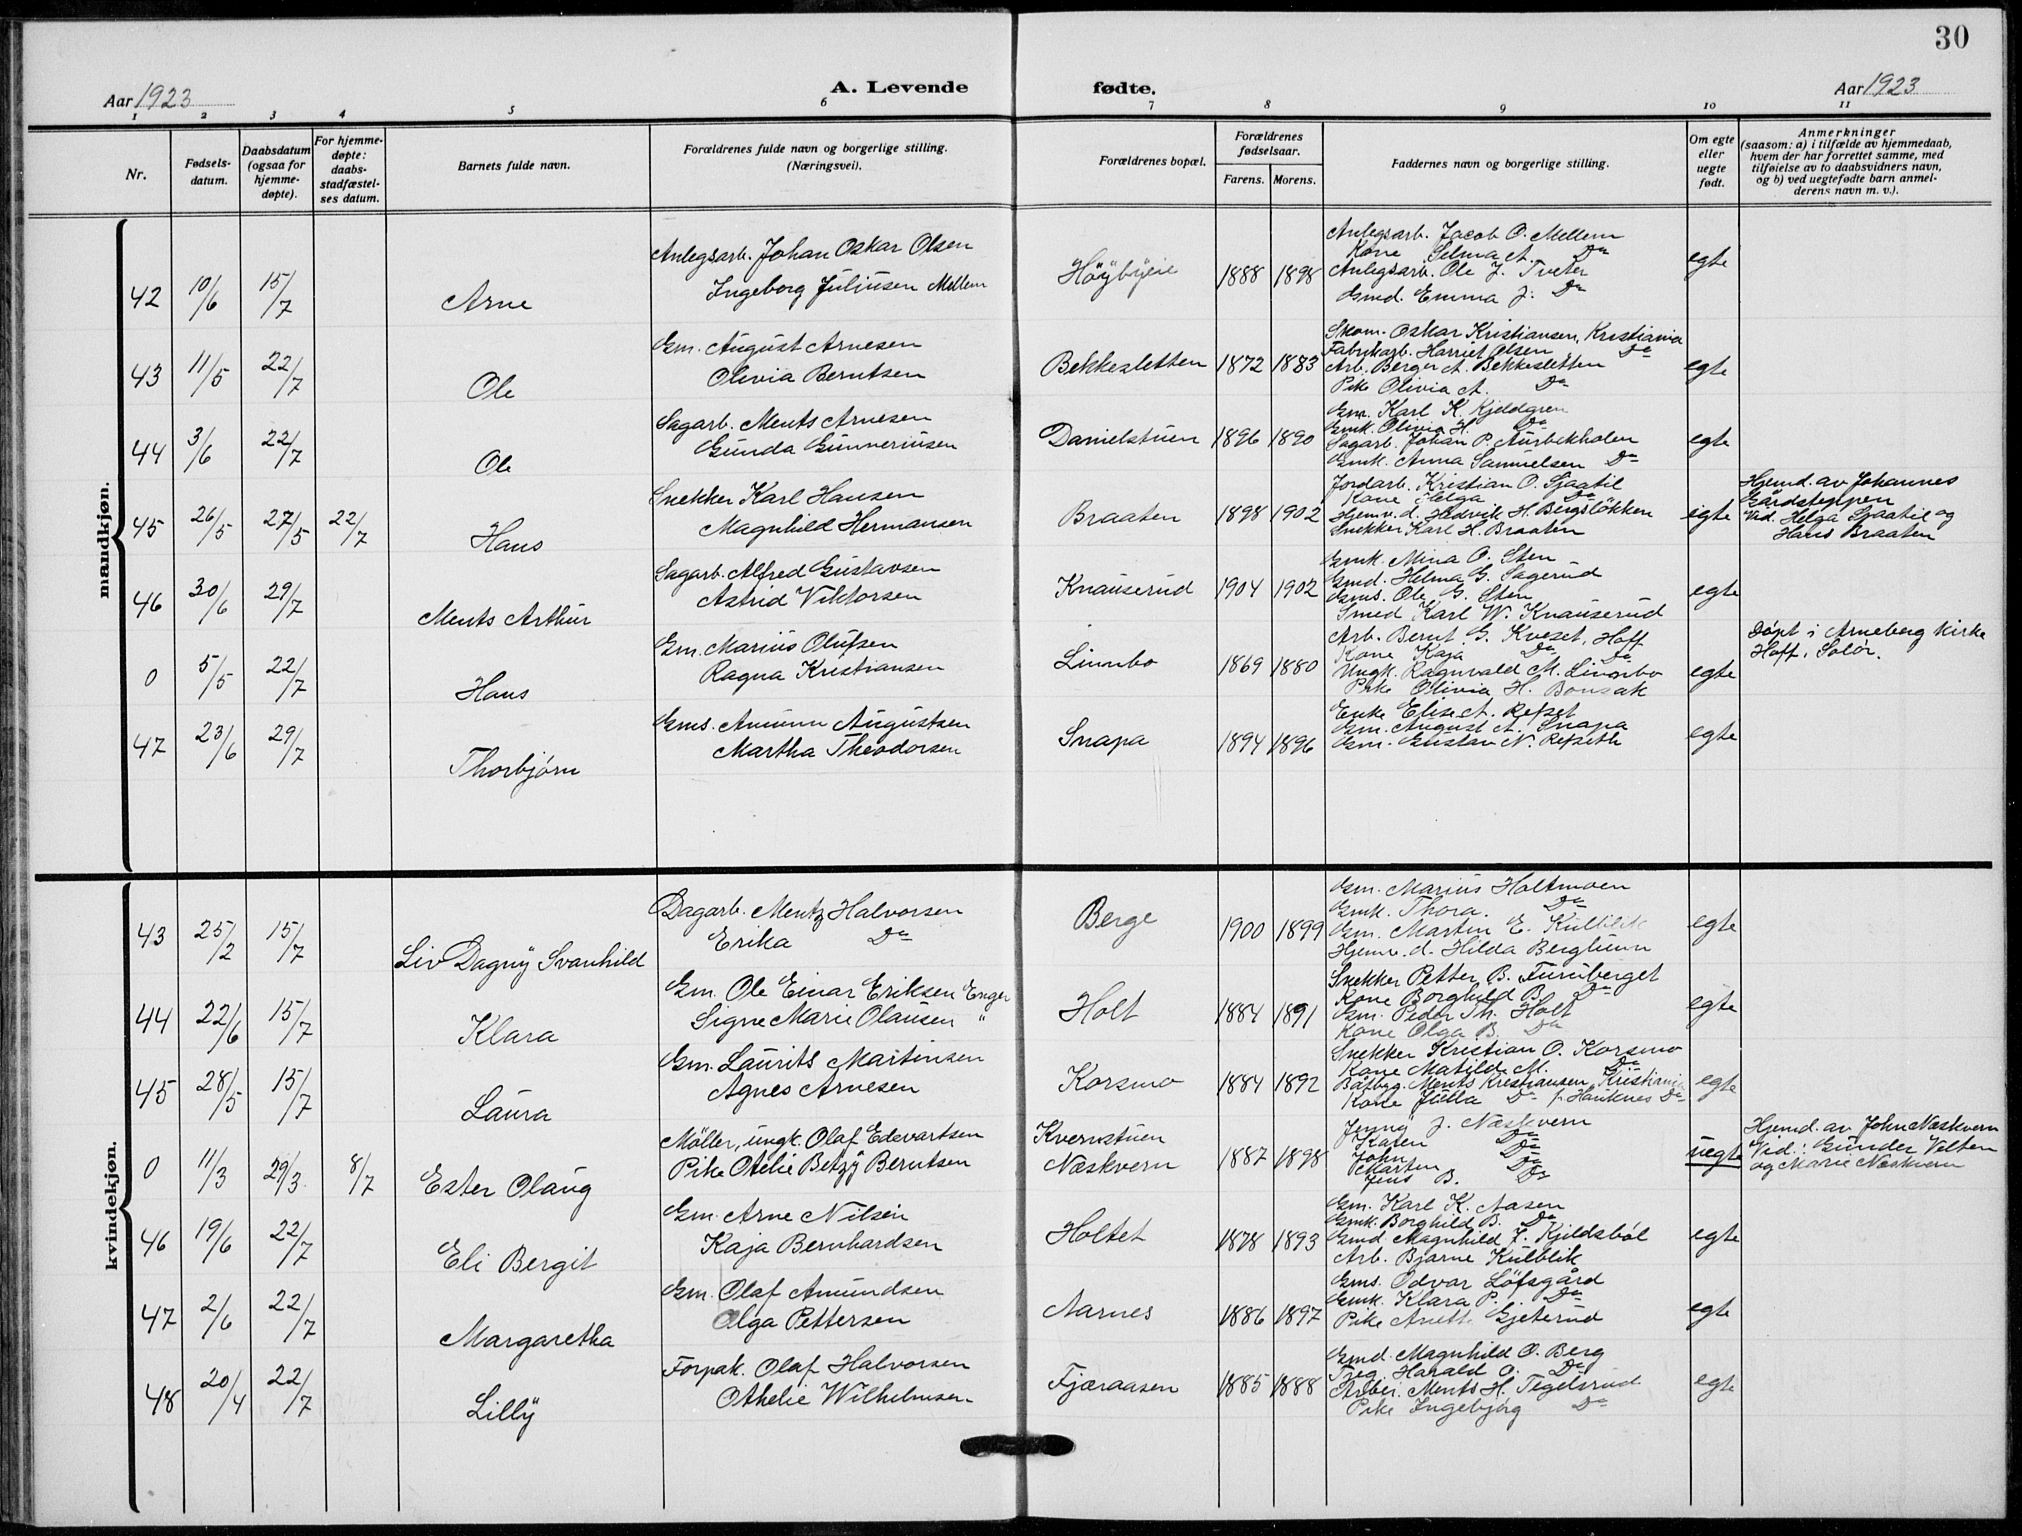 30
Aar 1923 A. Levende fødte. Aar 1923
1 2 3 4 5 6 7 8 9 10 11
Nr.
Fødsels-
datum.
Daabsdatum
(ogsaa for
hjemme-
døpte).
For hjemme-
døpte:
daabs-
stadfæstel-
ses datum.
Barnets fulde navn.
Forældrenes fulde navn og borgerlige stilling.
(Næringsvei).
Forældrenes bopæl.
Forældrenes
fødselsaar.
Farens. Morens.
Faddernes navn og borgerlige stilling.
Om egte
eller
uegte
født.
Anmerkninger
(saasom: a) i tilfælde av hjemmedaab,
hvem der har forrettet samme, med
tilføielse av to daabsvidners navn,
og b) ved uegtefødte barn anmel-
derens navn m. v.).
mandkjøn.
42 10/6 15/7 Arne
Anlegsarb. Johan Oskar Olsen
Ingeborg Juliusen Mellem
Höybyeie 1888 1898
Anlegsarb. Jacob O. Mellem
Kone Selma A. Do
Anlegsarb. Ole J. Tveter
Gmd. Emma J. Do
egte
43 11/5 22/7 Ole
Gm. August Arnesen
Olivia Berntsen
Bekkesletten 1872 1883
Skom. Oskar Kristiansen, Kristiania
Fabrikarb. Harriet Olsen Do
Arb. Berger A. Bekkesletten
Pike Olivia A. Do
egte
44 3/6 22/7 Ole
Sagarb. Ments Arnesen
Gunda Gunneriusen
Danielstuen 1896 1890
Gm. Karl K. Kjeldgren
Gmk. Olivia H. Do
Sagarb. Johan P. Aurbekholen
Gmk. Anna Samuelsen Do
egte
45 26/5 27/5 22/7 Hans
Snekker Karl Hansen
Magnhild Hermansen
Braaten 1898 1902
Jordarb. Kristian O. Sjaatil
Kone Helga Do
Hjemv. d. Hedvik H. Bergsløkken
Snekker Karl H. Braaten
egte
Hjemd. av Johannes
Gårdsteppen
Vid. Helga Sjaatil og
Hans Braaten
46 30/6 29/7 Ments Arthur
Sagarb. Alfred Gustavsen
Astrid Viktorsen
Knauserud 1904 1902
Gmk. Mina O. Sten
Gmd. Helma G. Sagerud
Gms. Ole G. Sten
Smed Karl W. Knauserud
egte
0 5/5 22/7 Hans
Gm. Marius Olufsen
Ragna Kristiansen
Linnbo 1869 1880
Arb. Bernt G. Kveset, Hoff
Kone Kaja Do Do
Ungk. Ragnvald M. Linnbo
Pike Olivia H. Bonsak
egte
Døpt i Arneberg kirke
Hoff, Solör.
47 23/6 29/7 Thorbjörn
Gms. Amunn Augustsen
Martha Theodorsen
Snapa 1894 1896
Enke Elise A. Refset
Gm. August A. Snapa
Gm. Gustav N. Refseth
egte
kvindekjøn.
43 25/2 15/7 Liv Dagny Svanhild
Dagarb. Mentz Halvorsen
Erika Do
Berge 1900 1899
Gm. Marius Holtmoen
Gmk. Thora. Do
Gm. Martin E. Kulblik
Hjemv. d. Hilda Berglunn
egte
44 22/6 15/7 Klara
Gm. Ole Einar Eriksen Enger
Signe Marie Olausen "
Holt 1884 1891
Snekker Petter B. Furuberget
Kone Borghild B. Do
Gm. Peder Th. Holt
Kone Olga B. Do
egte
45 28/5 15/7 Laura
Gm. Laurits Martinsen
Agnes Arnesen
Korsmo 1884 1892
Snekker Kristian O. Korsmo
Kone Matilde M. Do
Båtbyg. Ments Kristiansen, Kristiania
Kone Julla Do f. Hauknes Do
egte
0 11/3 29/3 8/7 Ester Olaug
Möller, ungk. Olaf Edevartsen
Pike Otelie Betzy Berntsen
Kvernstuen
Næskvern 1887 1898
Jenny J. Næskvern
Karen Do
John Do
Marten Do
Jens B. Do
uegte
Hjemd. av John Næskvern
Vid.: Gunder Velten
og Marie Næskvern
46 19/6 22/7 Eli Bergit
Gm. Arne Nilsen
Kaja Bernhardsen
Holtet 1878 1893
Gm. Karl K. Aasen
Gmk. Borghild B. Do
Gmd Magnhild J. Kjildsböl
Arb. Bjarne Kulblik
egte
47 2/6 22/7 Margaretha
Gm. Olaf Amundsen
Olga Pettersen
Aarnes 1886 1897
Gms. Odvar Löfsgård
Gmk. Klara P. Do
Pike Anette Gjeterud
egte
48 20/4 22/7 Lilly
Forpak. Olaf Halvorsen
Othelie Wilhelmsen
Fjæraasen 1885 1888
Gmd. Magnhild O. Berg
Harald O. Do
Arbei. Ments H. Tegelsrud
Pike Ingebjörg Do
egte